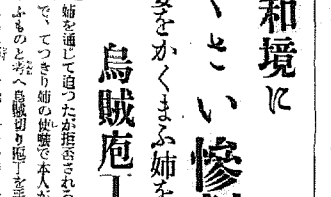 和境に
くさい惨
をかくまふ姉を
烏賊庖丁
姉を通して迫つたが拒否される
で、てつきり姉の使嗾で本人が
ふものと考へ烏賊切り庖丁を